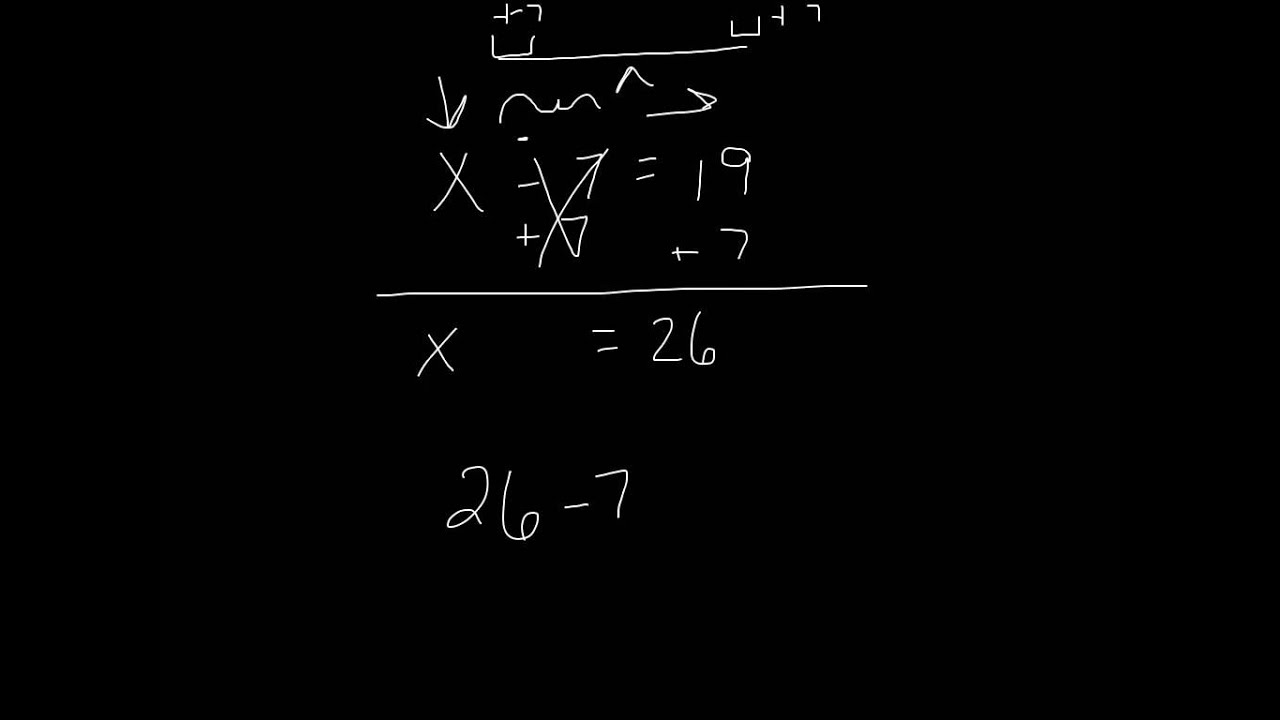 +7 +7
x - 7 = 19
+7 +7
x = 26
26 - 7